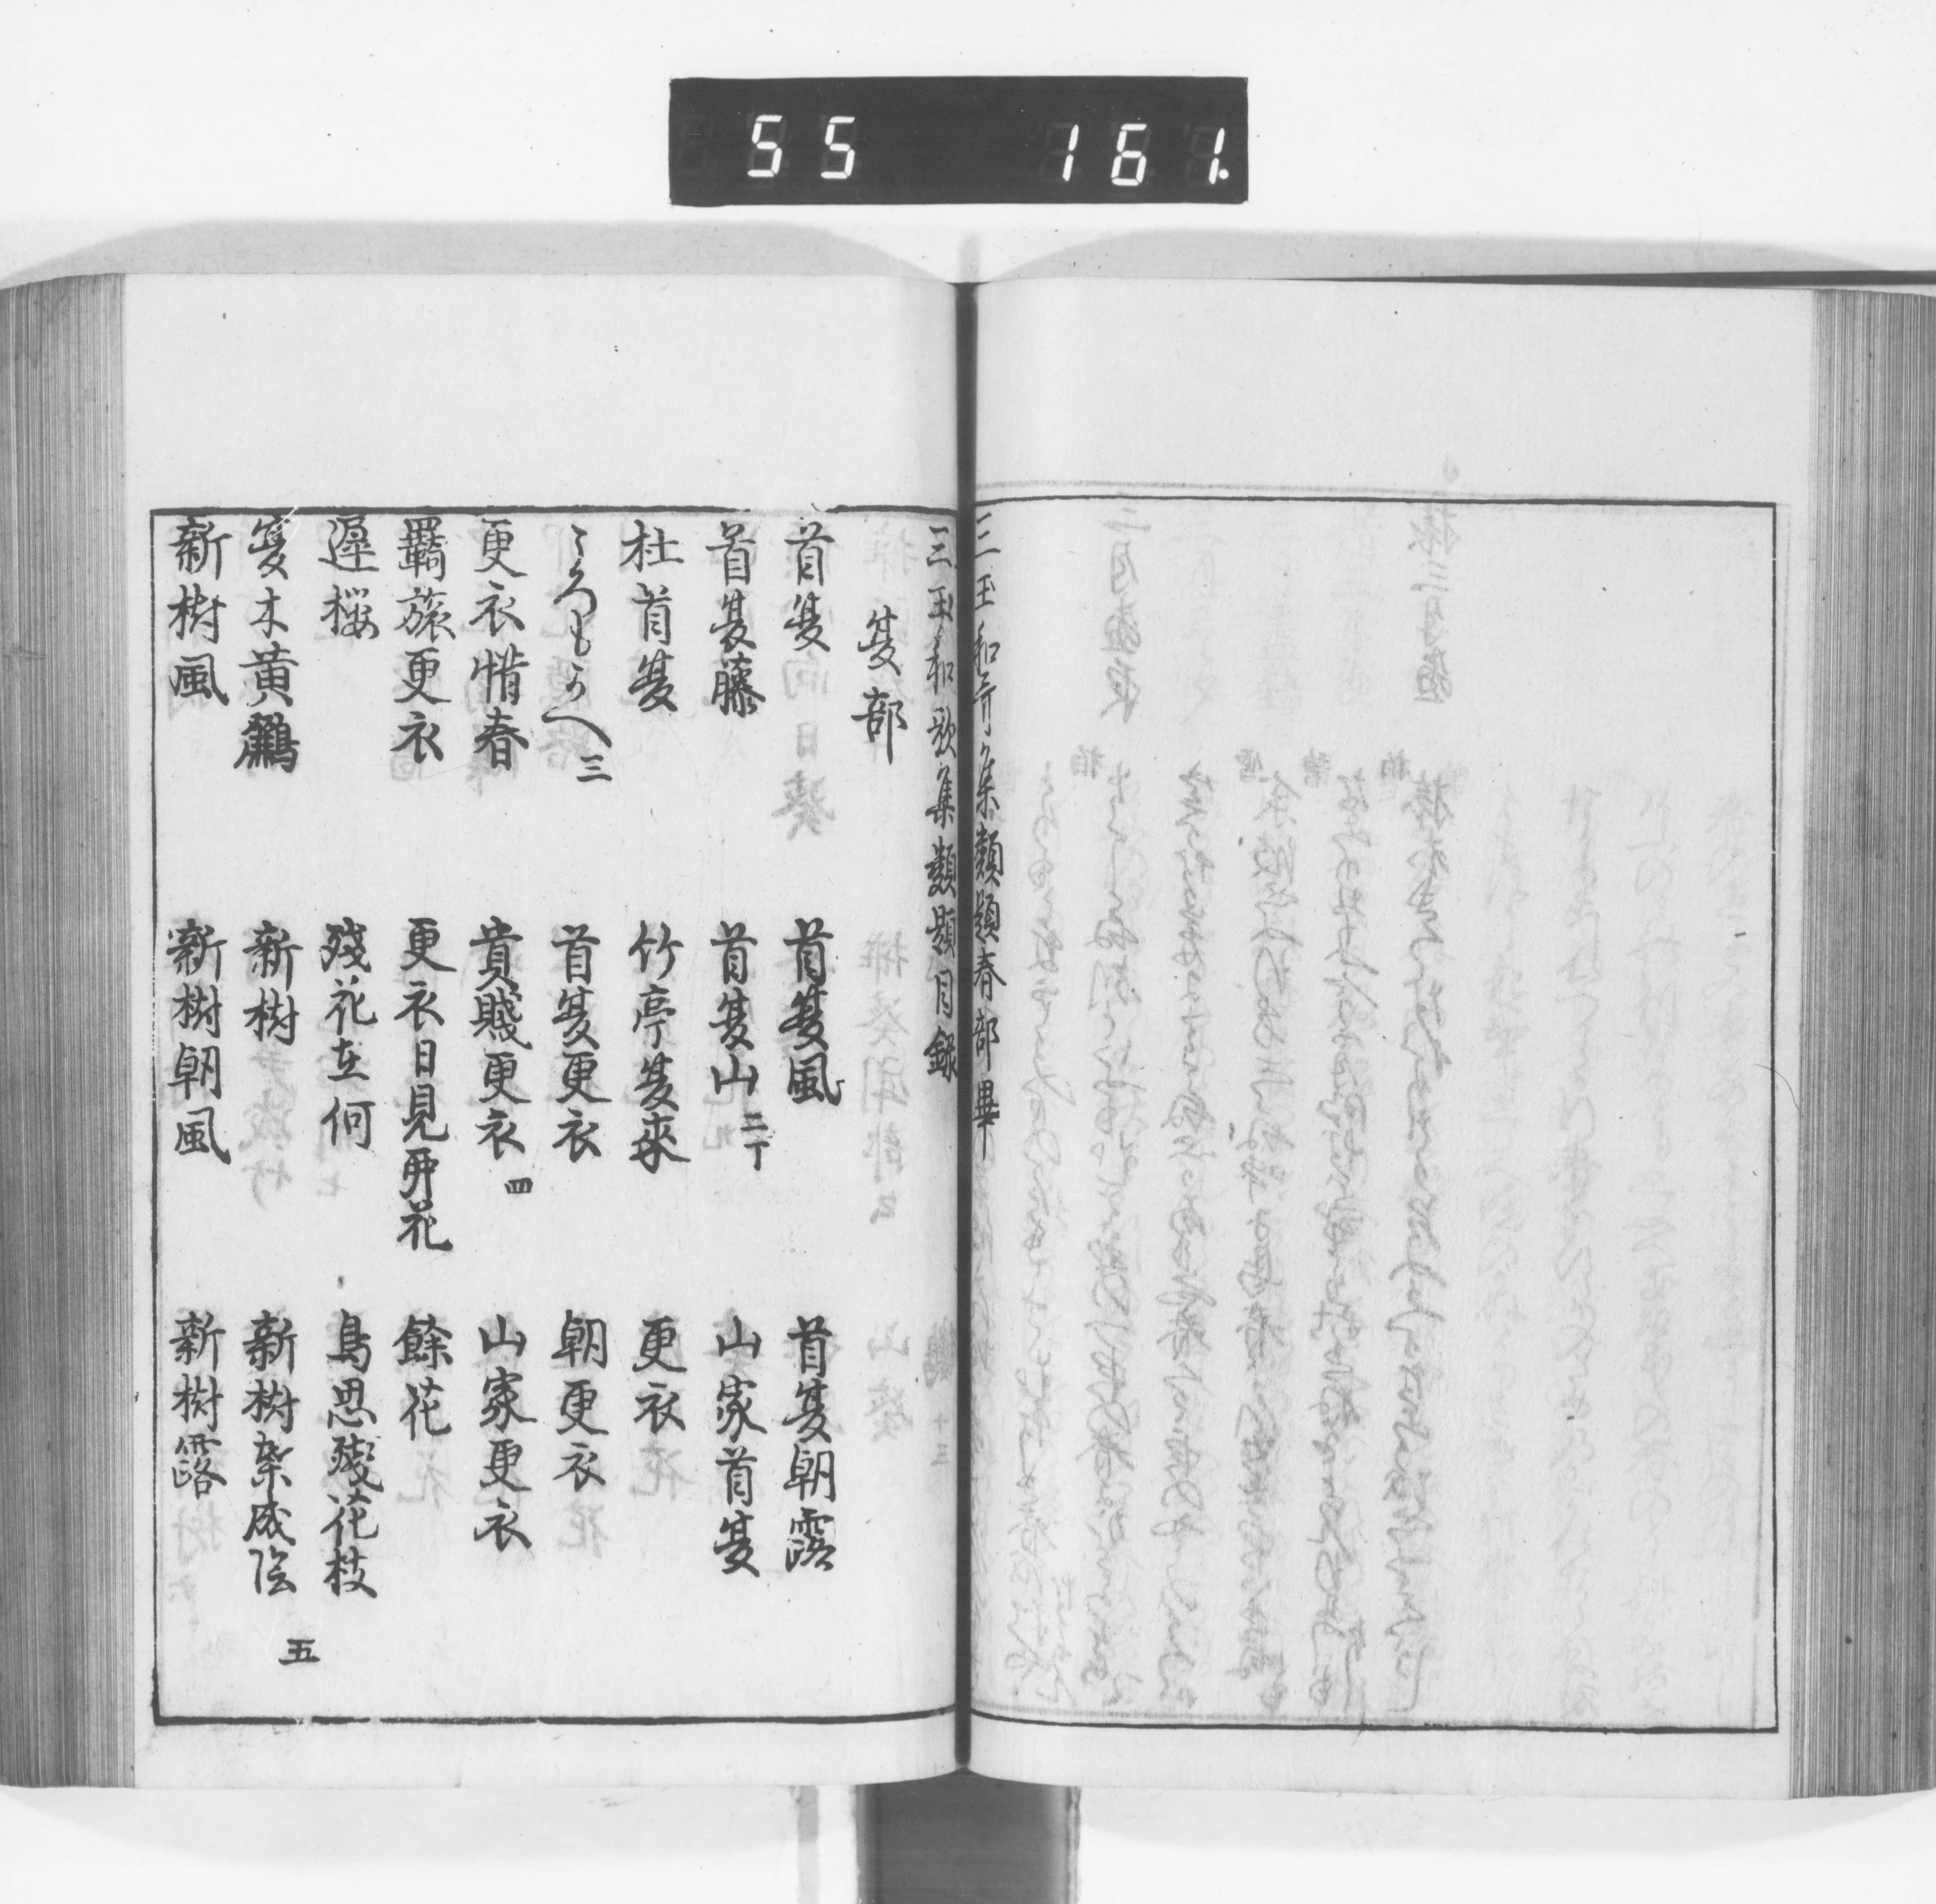 55 161.
三玉和哥集類題春部畢
三玉和歌集類題目録
夏部
首夏 首夏風 首夏朝露
首夏藤 首夏山 二丁 山家首夏
杜首夏 竹亭夏来 更衣
ころもかへ 三 首夏更衣 朝更衣
更衣惜春 貴賤更衣 四 山家更衣
羇旅更衣 更衣日見残花 餘花
遅桜 残花在何 鳥思残花枝
夏木黄鸝 新樹 新樹漸成陰 五
新樹風 新樹朝風 新樹露